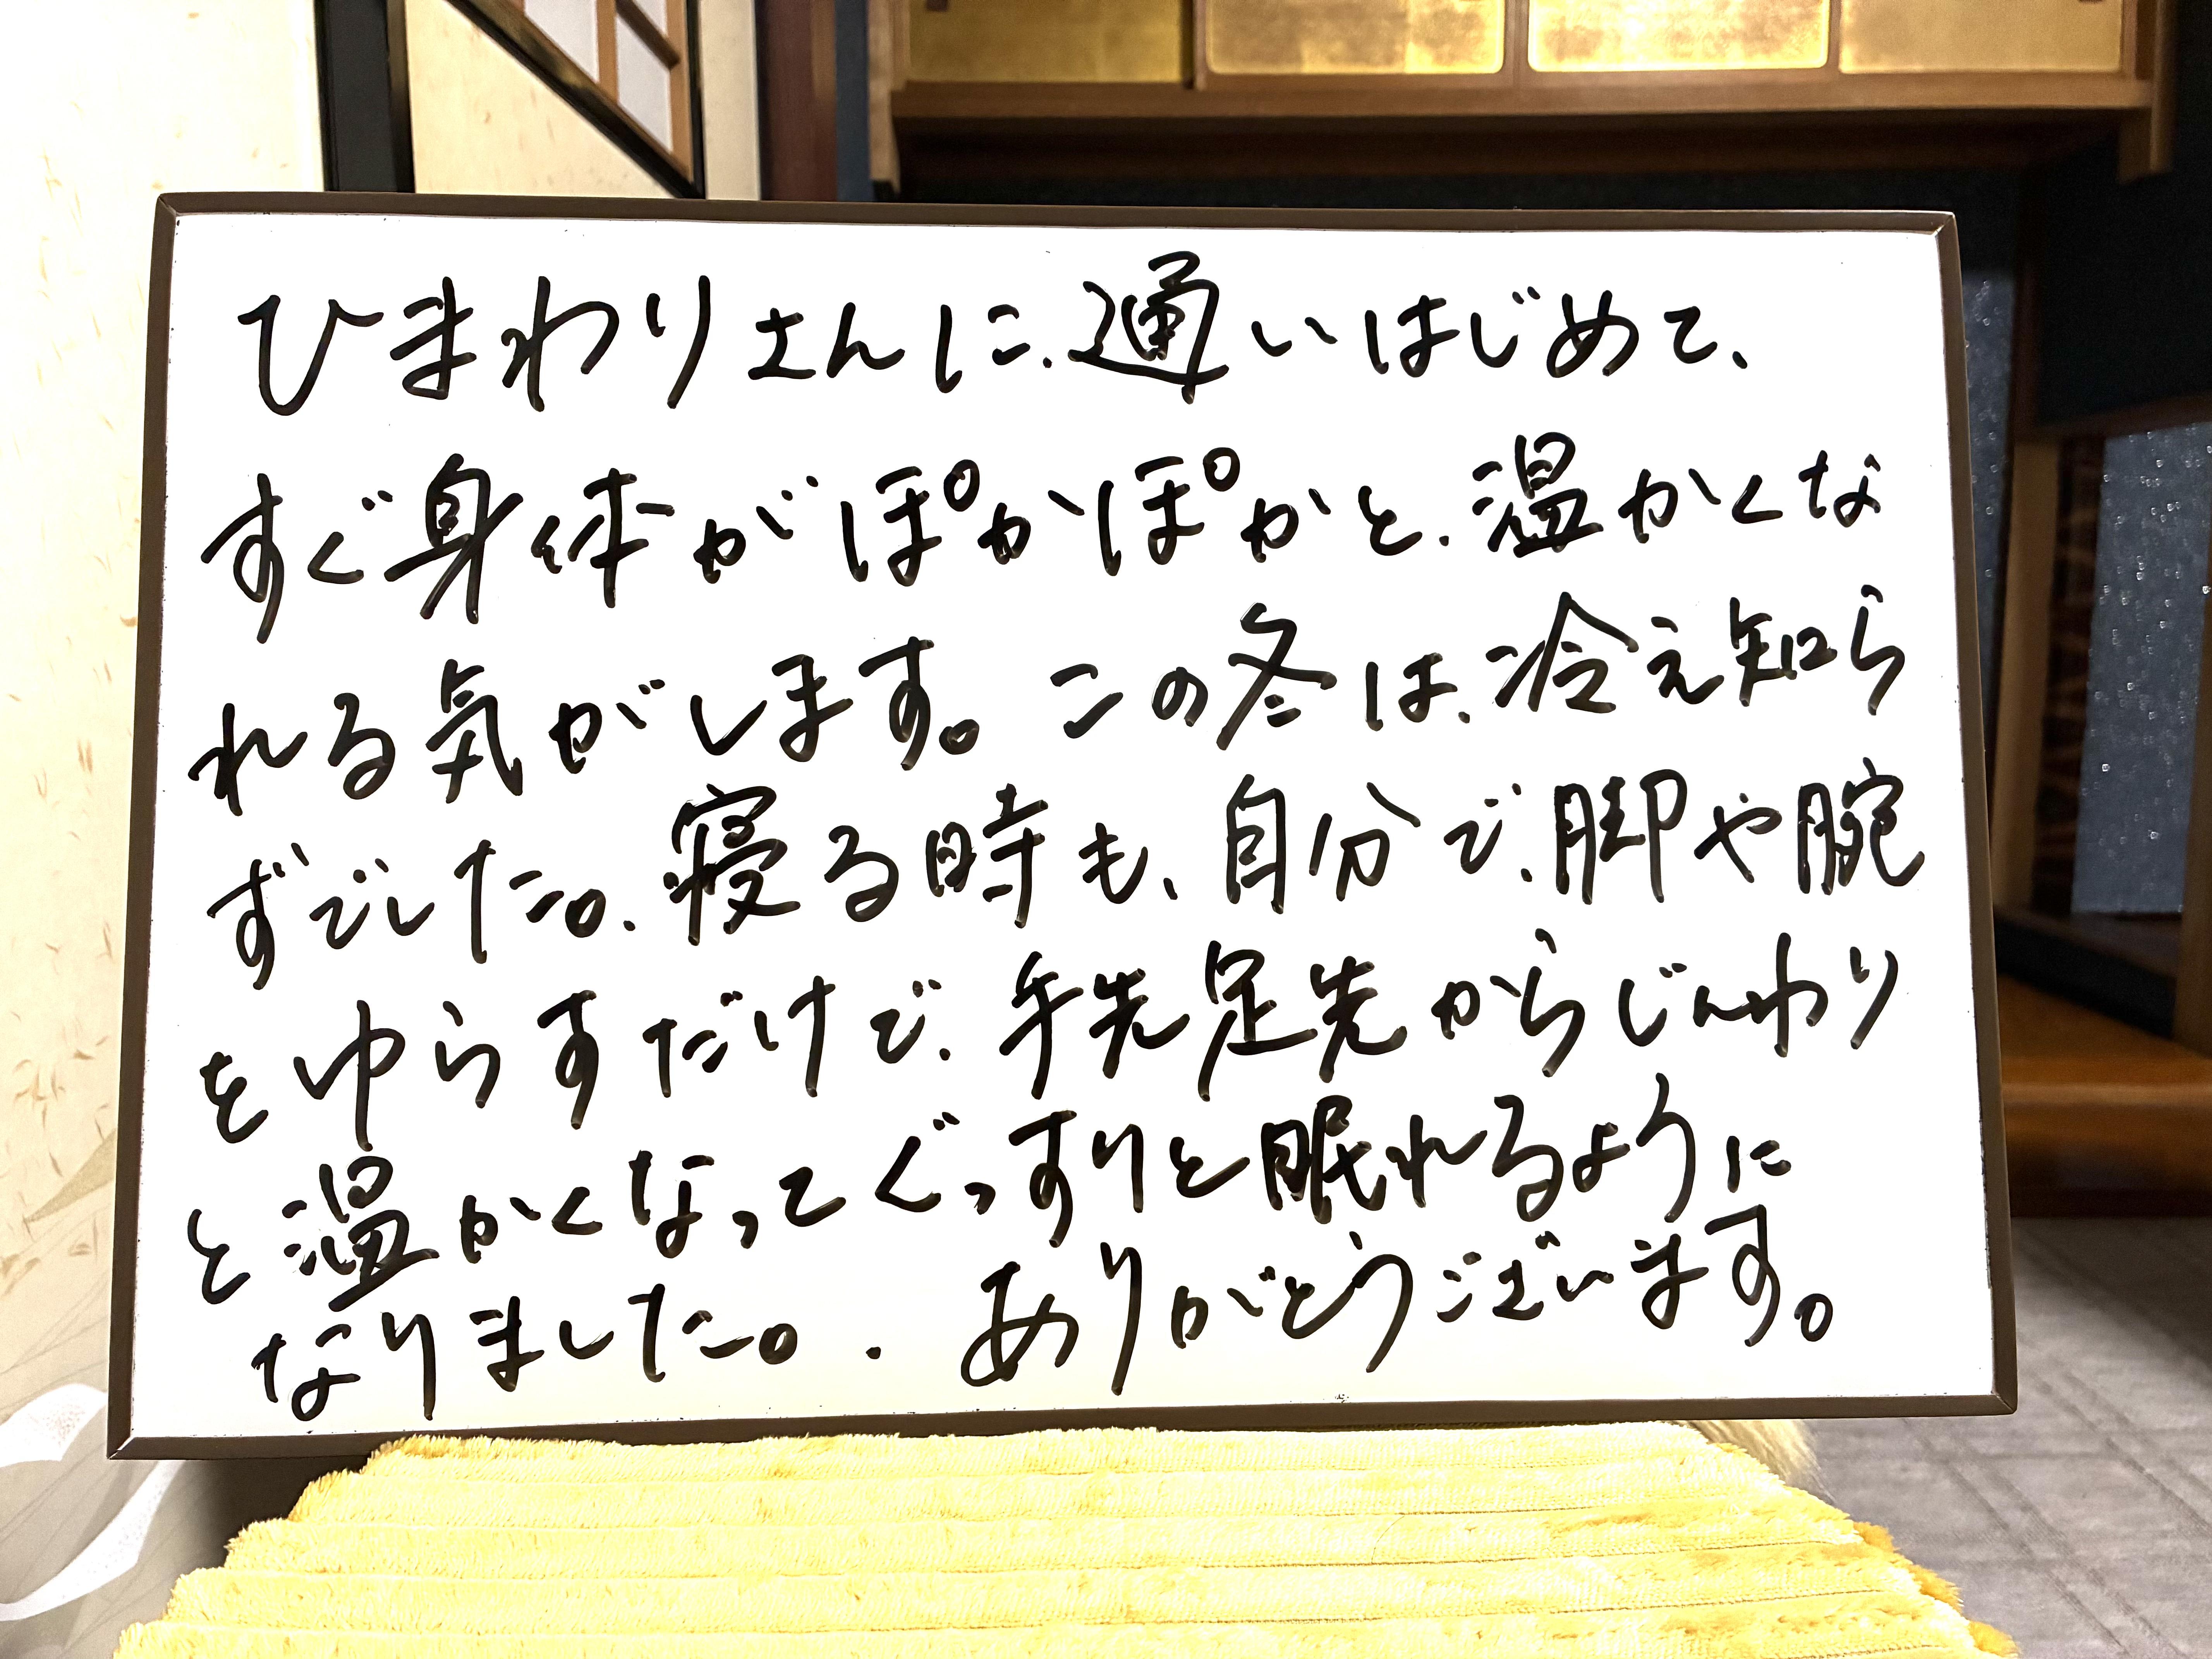 ひまわりさんに.通いはじめて、
すぐ身体がぽかぽかと.温かくな
れる気がします。この冬は.冷え知ら
ずでした。.寝る時も、自分で.脚や腕
をゆらすだけで.手先足先からじんわり
と温かくなってぐっすりと眠れるように
なりました。.ありがとうございます。